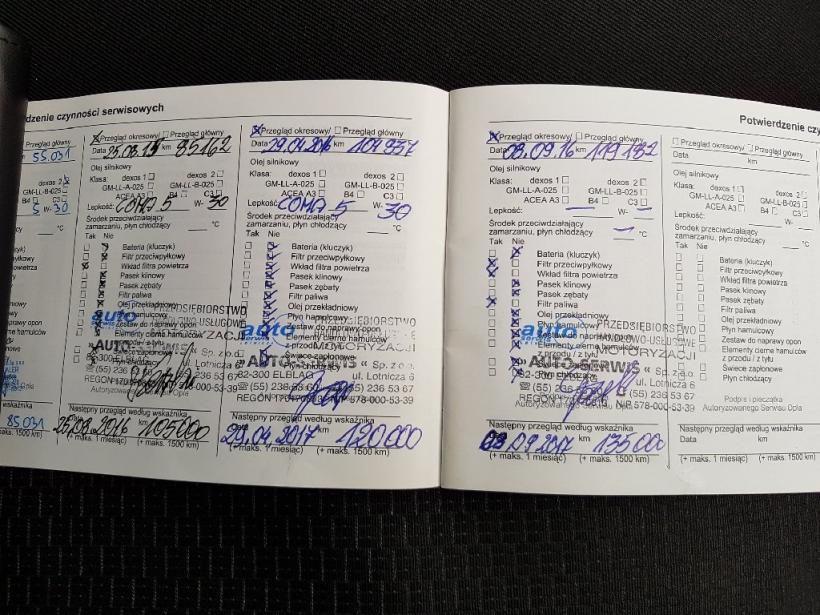 dzenie czynności serwisowych
gląd główny
55.031
dexos 2
GM-LL-B-025
C3
5 W-30
°C
85031
aks. 1500 km)
Przegląd okresowy/ Przegląd główny
Data 25.08.15 km 85162
Olej silnikowy
Klasa: dexos 1 dexos 2
GM-LL-A-025 GM-LL-B-025
ACEA A3 B4 C3
Lepkość: COMA 5 W- 30
Środek przeciwdziałający
zamarzaniu, płyn chłodzący: °C
Tak Nie
Bateria (kluczyk)
Filtr przeciwpyłkowy
Wkład filtra powietrza
Pasek klinowy
Pasek zębaty
Filtr paliwa
Olej przekładniowy
Zestaw do naprawy opon
Elementy cierne hamulców
z przodu / z tyłu
Następny przegląd według wskaźnika
Data 25.08.2016 105000
(+ maks. 1 miesiąc) (+ maks. 1500 km)
Przegląd okresowy/ Przegląd główny
Data 29.04.2016 km 104937
Olej silnikowy
Klasa: dexos 1 dexos 2
GM-LL-A-025 GM-LL-B-025
ACEA A3 B4 C3
Lepkość: COMA 5 W- 30
Środek przeciwdziałający
zamarzaniu, płyn chłodzący: °C
Tak Nie
Bateria (kluczyk)
Filtr przeciwpyłkowy
Wkład filtra powietrza
Pasek klinowy
Pasek zębaty
Filtr paliwa
Olej przekładniowy
Płyn hamulcowy
Zestaw do naprawy opon
Elementy cierne hamulców
z przodu / z tyłu
Świece zapłonowe
Płyn chłodzący
auto
82-300 ELBLĄG ul. Lotnicza 6
(55) 236 53 67
Następny przegląd według wskaźnika
29.04.2017 km 120.000
(+ maks. 1 miesiąc) (+ maks. 1500 km)
Potwierdzenie czy
Przegląd okresowy/ Przegląd główny
Data 08.09.16 km 119182
Olej silnikowy
Klasa: dexos 1 dexos 2
GM-LL-A-025 GM-LL-B-025
ACEA A3 B4 C3
Lepkość: — W- —
Środek przeciwdziałający
zamarzaniu, płyn chłodzący: — °C
Tak Nie
Bateria (kluczyk)
Filtr przeciwpyłkowy
Wkład filtra powietrza
Pasek klinowy
Pasek zębaty
Filtr paliwa
Olej przekładniowy
Płyn hamulcowy
Zestaw do naprawy opon
Elementy cierne hamulców
z przodu / z tyłu
Świece zapłonowe
Płyn chłodzący
PRZEDSIĘBIORSTWO
HANDLOWO-USŁUGOWE
MOTORYZACJI
auto
AUTO-SERWIS « Sp. z o.o.
ul. Lotnicza 6
(55) 236 53 67
NIP 578-000-53-39
Następny przegląd według wskaźnika
08.09.2017 km 135000
(+ maks. 1 miesiąc) (+ maks. 1500 km)
Przegląd okresowy/ Przegląd
Data km
Olej silnikowy
Klasa: dexos 1 dexos 2
GM-LL-A-025 GM-LL-B-025
ACEA A3 B4 C3
Lepkość: W-
Środek przeciwdziałający
zamarzaniu, płyn chłodzący: °C
Tak Nie
Bateria (kluczyk)
Filtr przeciwpyłkowy
Wkład filtra powietrza
Pasek klinowy
Pasek zębaty
Filtr paliwa
Olej przekładniowy
Płyn hamulcowy
Zestaw do naprawy opon
Elementy cierne hamulców
z przodu / z tyłu
Świece zapłonowe
Płyn chłodzący
Podpis i pieczątka
Autoryzowanego Serwisu Opla
Następny przegląd według wskaźnika
Data km
(+ maks. 1 miesiąc) (+ maks. 1500 km)